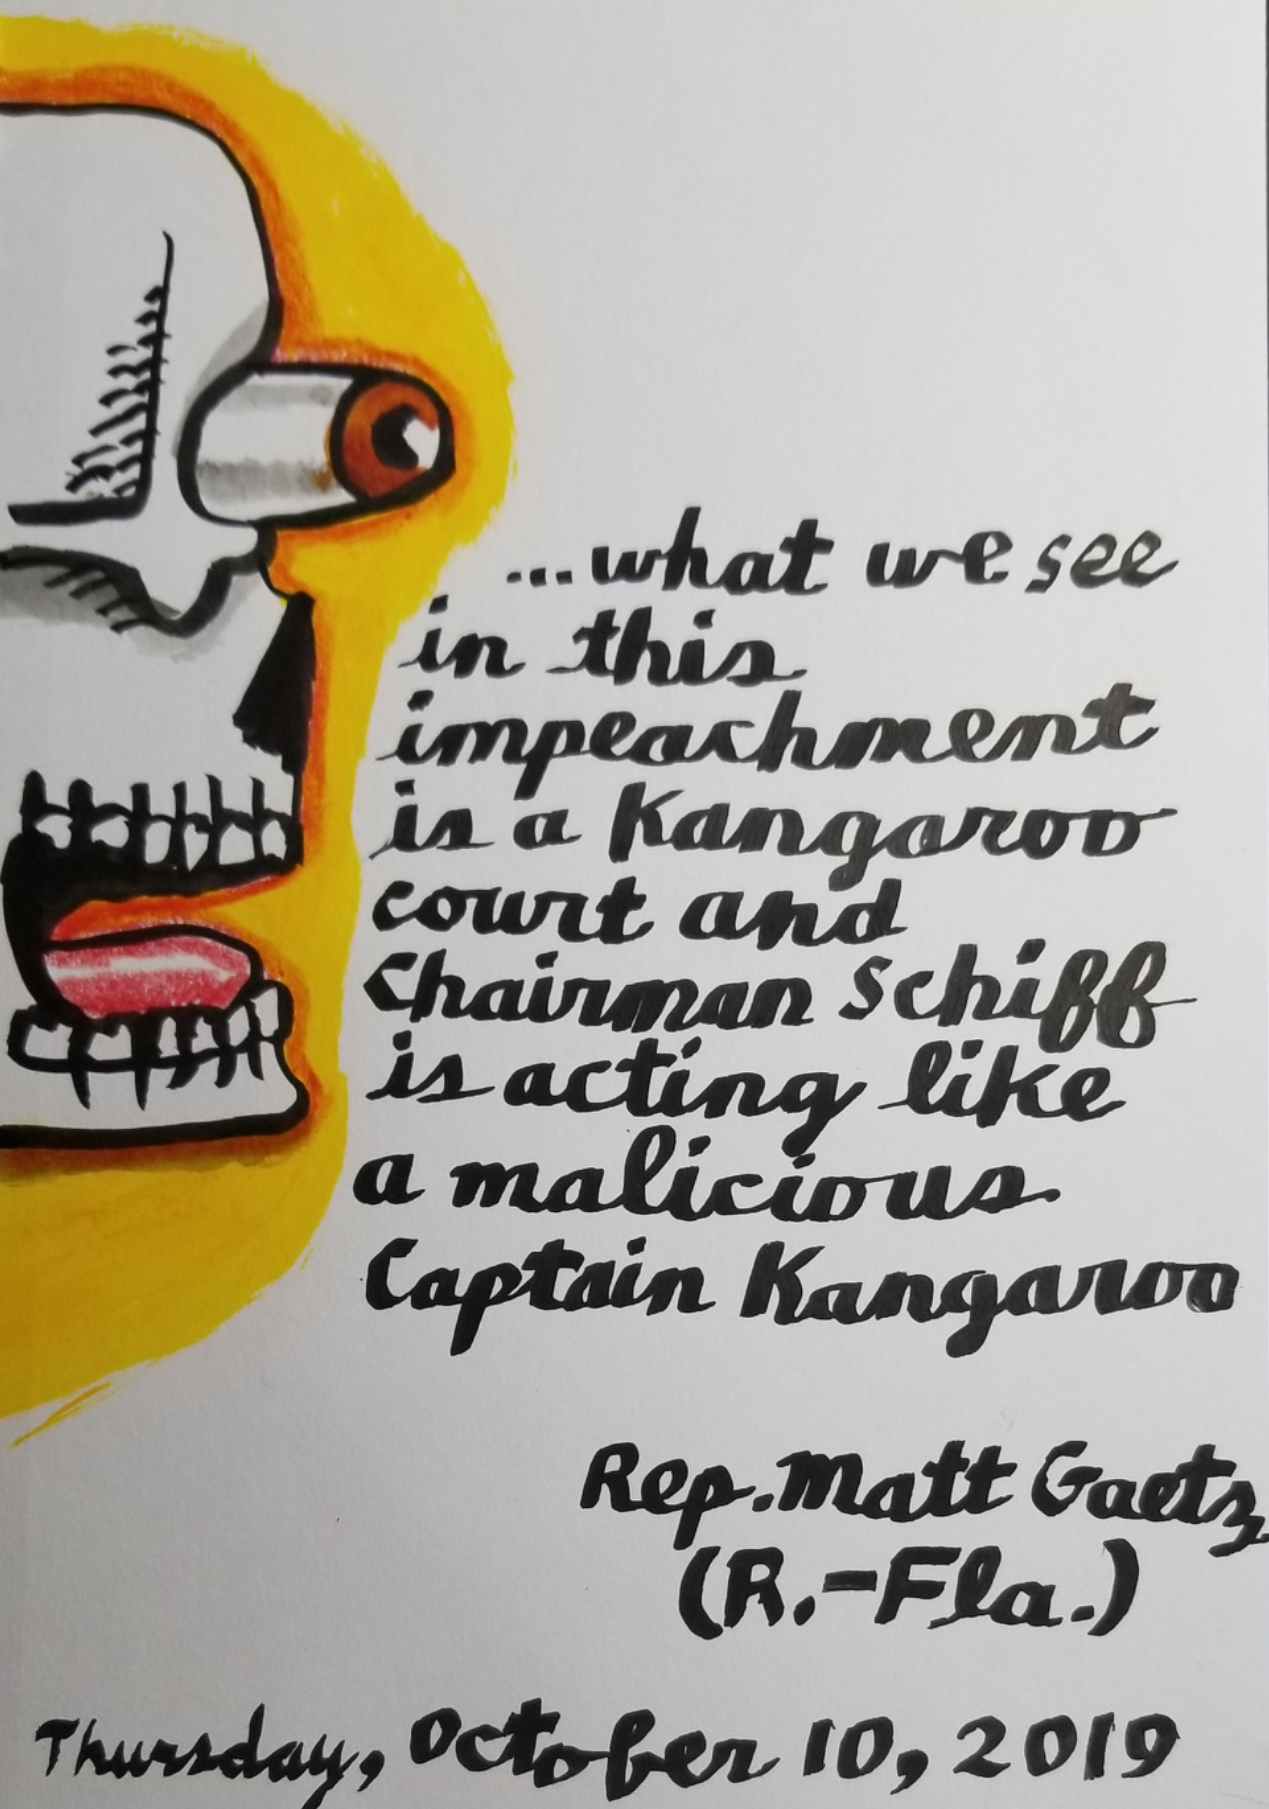 ...what we see
in this
impeachment
is a Kangaroo
court and
Chairman Schiff
is acting like
a malicious
Captain Kangaroo
Rep. Matt Gaetz
(R.-Fla.)
Thursday, October 10, 2019